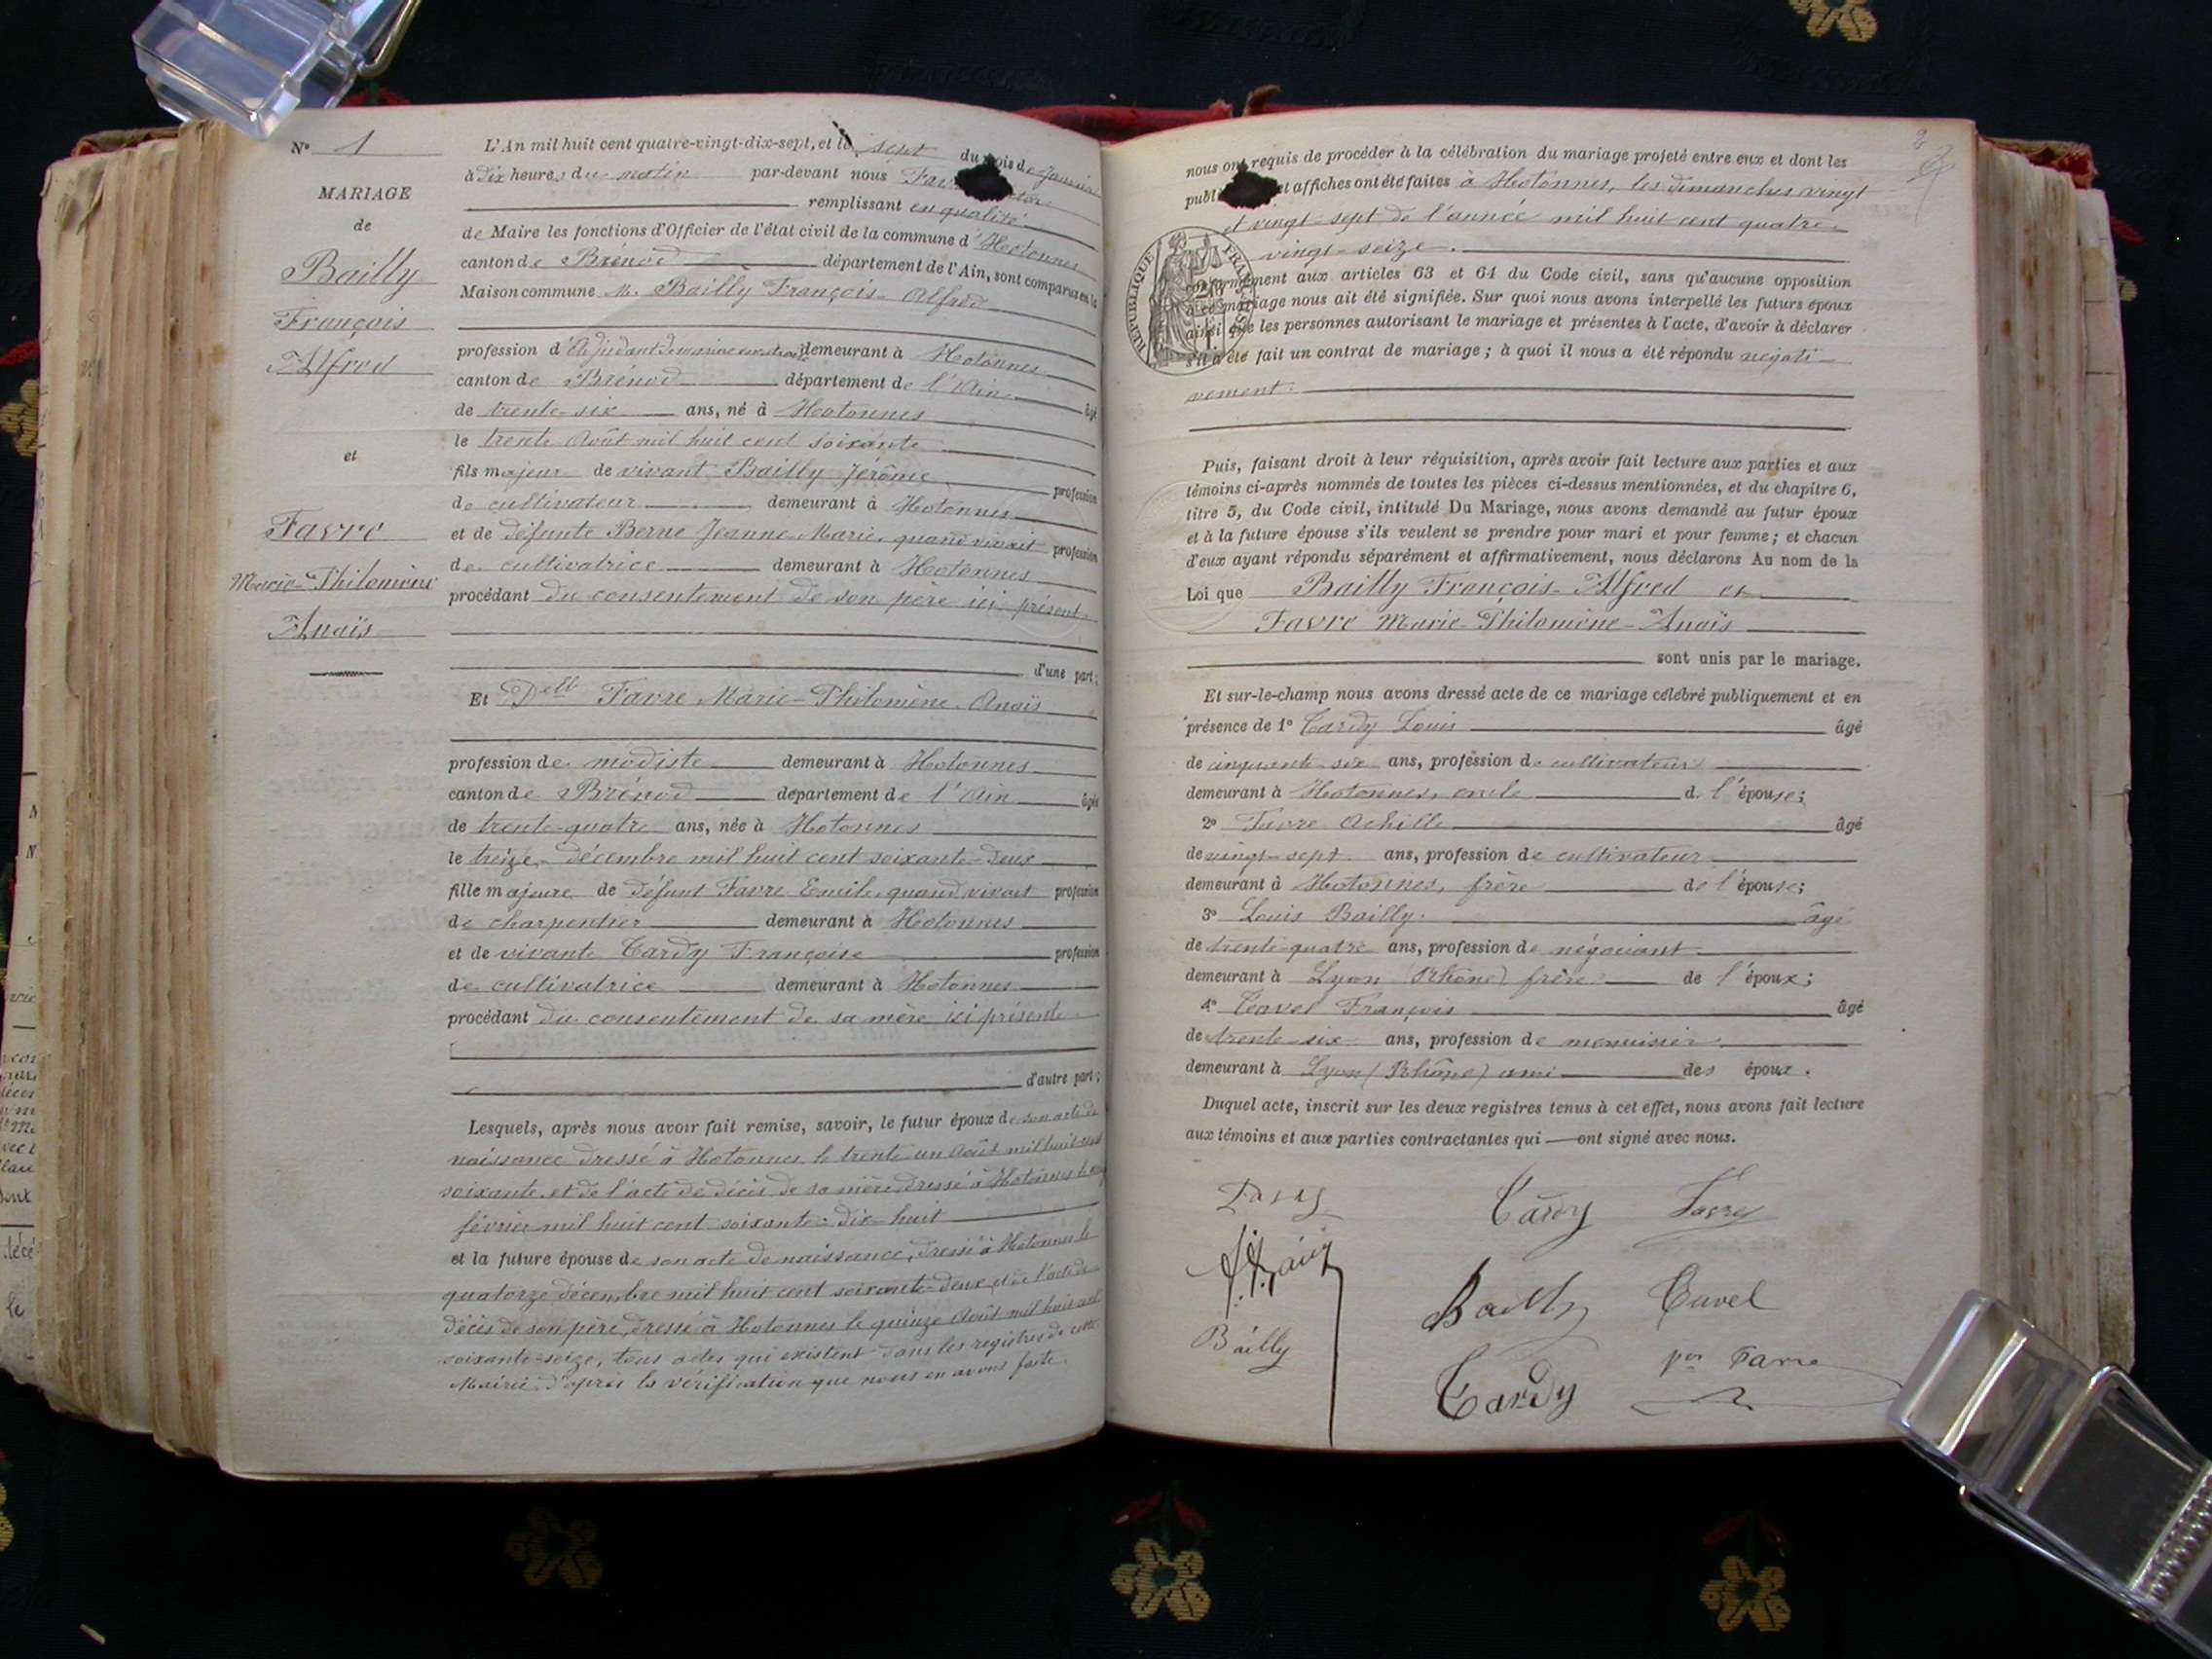 N° 1
MARIAGE
de
Bailly
François
Alfred
et
Favre
Marie-Philomène
Anaïs
L'An mil huit cent quatre-vingt-dix-sept, et le sept du mois de Janvier
à dix heures du matin par-devant nous
remplissant en qualité
de Maire les fonctions d'Officier de l'état civil de la commune d'Hotonnes
canton de Brénod département de l'Ain, sont comparus en la
Maison commune M. Bailly François-Alfred
profession d'Adjudant de marine en retraite demeurant à Hotonnes
canton de Brénod département de l'Ain âgé
de trente-six ans, né à Hotonnes
le trente Août mil huit cent soixante
fils majeur de vivant Bailly Jérôme profession
de cultivateur demeurant à Hotonnes
et de défunte Berne Jeanne-Marie, quand vivait profession
de cultivatrice demeurant à Hotonnes
procédant du consentement de son père ici présent
d'une part;
Et Delle Favre Marie-Philomène-Anaïs
profession de modiste demeurant à Hotonnes
canton de Brénod département de l'Ain âgée
de trente-quatre ans, née à Hotonnes
le treize décembre mil huit cent soixante-deux
fille majeure de défunt Favre Emile, quand vivait profession
de charpentier demeurant à Hotonnes
et de vivante Tardy Françoise profession
de cultivatrice demeurant à Hotonnes
procédant du consentement de sa mère ici présente
d'autre part;
Lesquels, après nous avoir fait remise, savoir, le futur époux de son acte de
naissance dressé à Hotonnes le trente un Août mil huit cent
soixante, et de l'acte de décès de sa mère dressé à Hotonnes le
février mil huit cent soixante-dix-huit
et la future épouse de son acte de naissance, dressé à Hotonnes le
quatorze décembre mil huit cent soixante-deux, et de l'acte de
décès de son père, dressé à Hotonnes le quinze Août mil huit cent
soixante-seize, tous actes qui existent dans les registres de cette
Mairie, d'après la vérification que nous en avons faite.
2
nous ont requis de procéder à la célébration du mariage projeté entre eux et dont les
publ et affiches ont été faites à Hotonnes, les dimanches vingt
et vingt-sept de l'année mil huit cent quatre-
vingt-seize.
RÉPUBLIQUE FRANÇAISE
conformément aux articles 63 et 64 du Code civil, sans qu'aucune opposition
à ce mariage nous ait été signifiée. Sur quoi nous avons interpellé les futurs époux
ainsi que les personnes autorisant le mariage et présentes à l'acte, d'avoir à déclarer
s'il a été fait un contrat de mariage; à quoi il nous a été répondu négati-
vement.
Puis, faisant droit à leur réquisition, après avoir fait lecture aux parties et aux
témoins ci-après nommés de toutes les pièces ci-dessus mentionnées, et du chapitre 6,
titre 5, du Code civil, intitulé Du Mariage, nous avons demandé au futur époux
et à la future épouse s'ils veulent se prendre pour mari et pour femme; et chacun
d'eux ayant répondu séparément et affirmativement, nous déclarons Au nom de la
Loi que Bailly François-Alfred et
Favre Marie-Philomène-Anaïs
sont unis par le mariage.
Et sur-le-champ nous avons dressé acte de ce mariage célébré publiquement et en
présence de 1° Tardy Louis âgé
de cinquante-six ans, profession de cultivateur
demeurant à Hotonnes, oncle d. l'épouse;
2° Favre Achille âgé
de vingt-sept ans, profession de cultivateur
demeurant à Hotonnes, frère de l'épouse;
3° Louis Bailly. âgé
de trente-quatre ans, profession de négociant
demeurant à Lyon (Rhône) frère de l'époux;
4° Tavel François âgé
de trente-six ans, profession de menuisier
demeurant à Lyon (Rhône) ami des époux.
Duquel acte, inscrit sur les deux registres tenus à cet effet, nous avons fait lecture
aux témoins et aux parties contractantes qui ont signé avec nous.
Tardy Favre
Bailly Tavel
Bailly
Tardy Favre